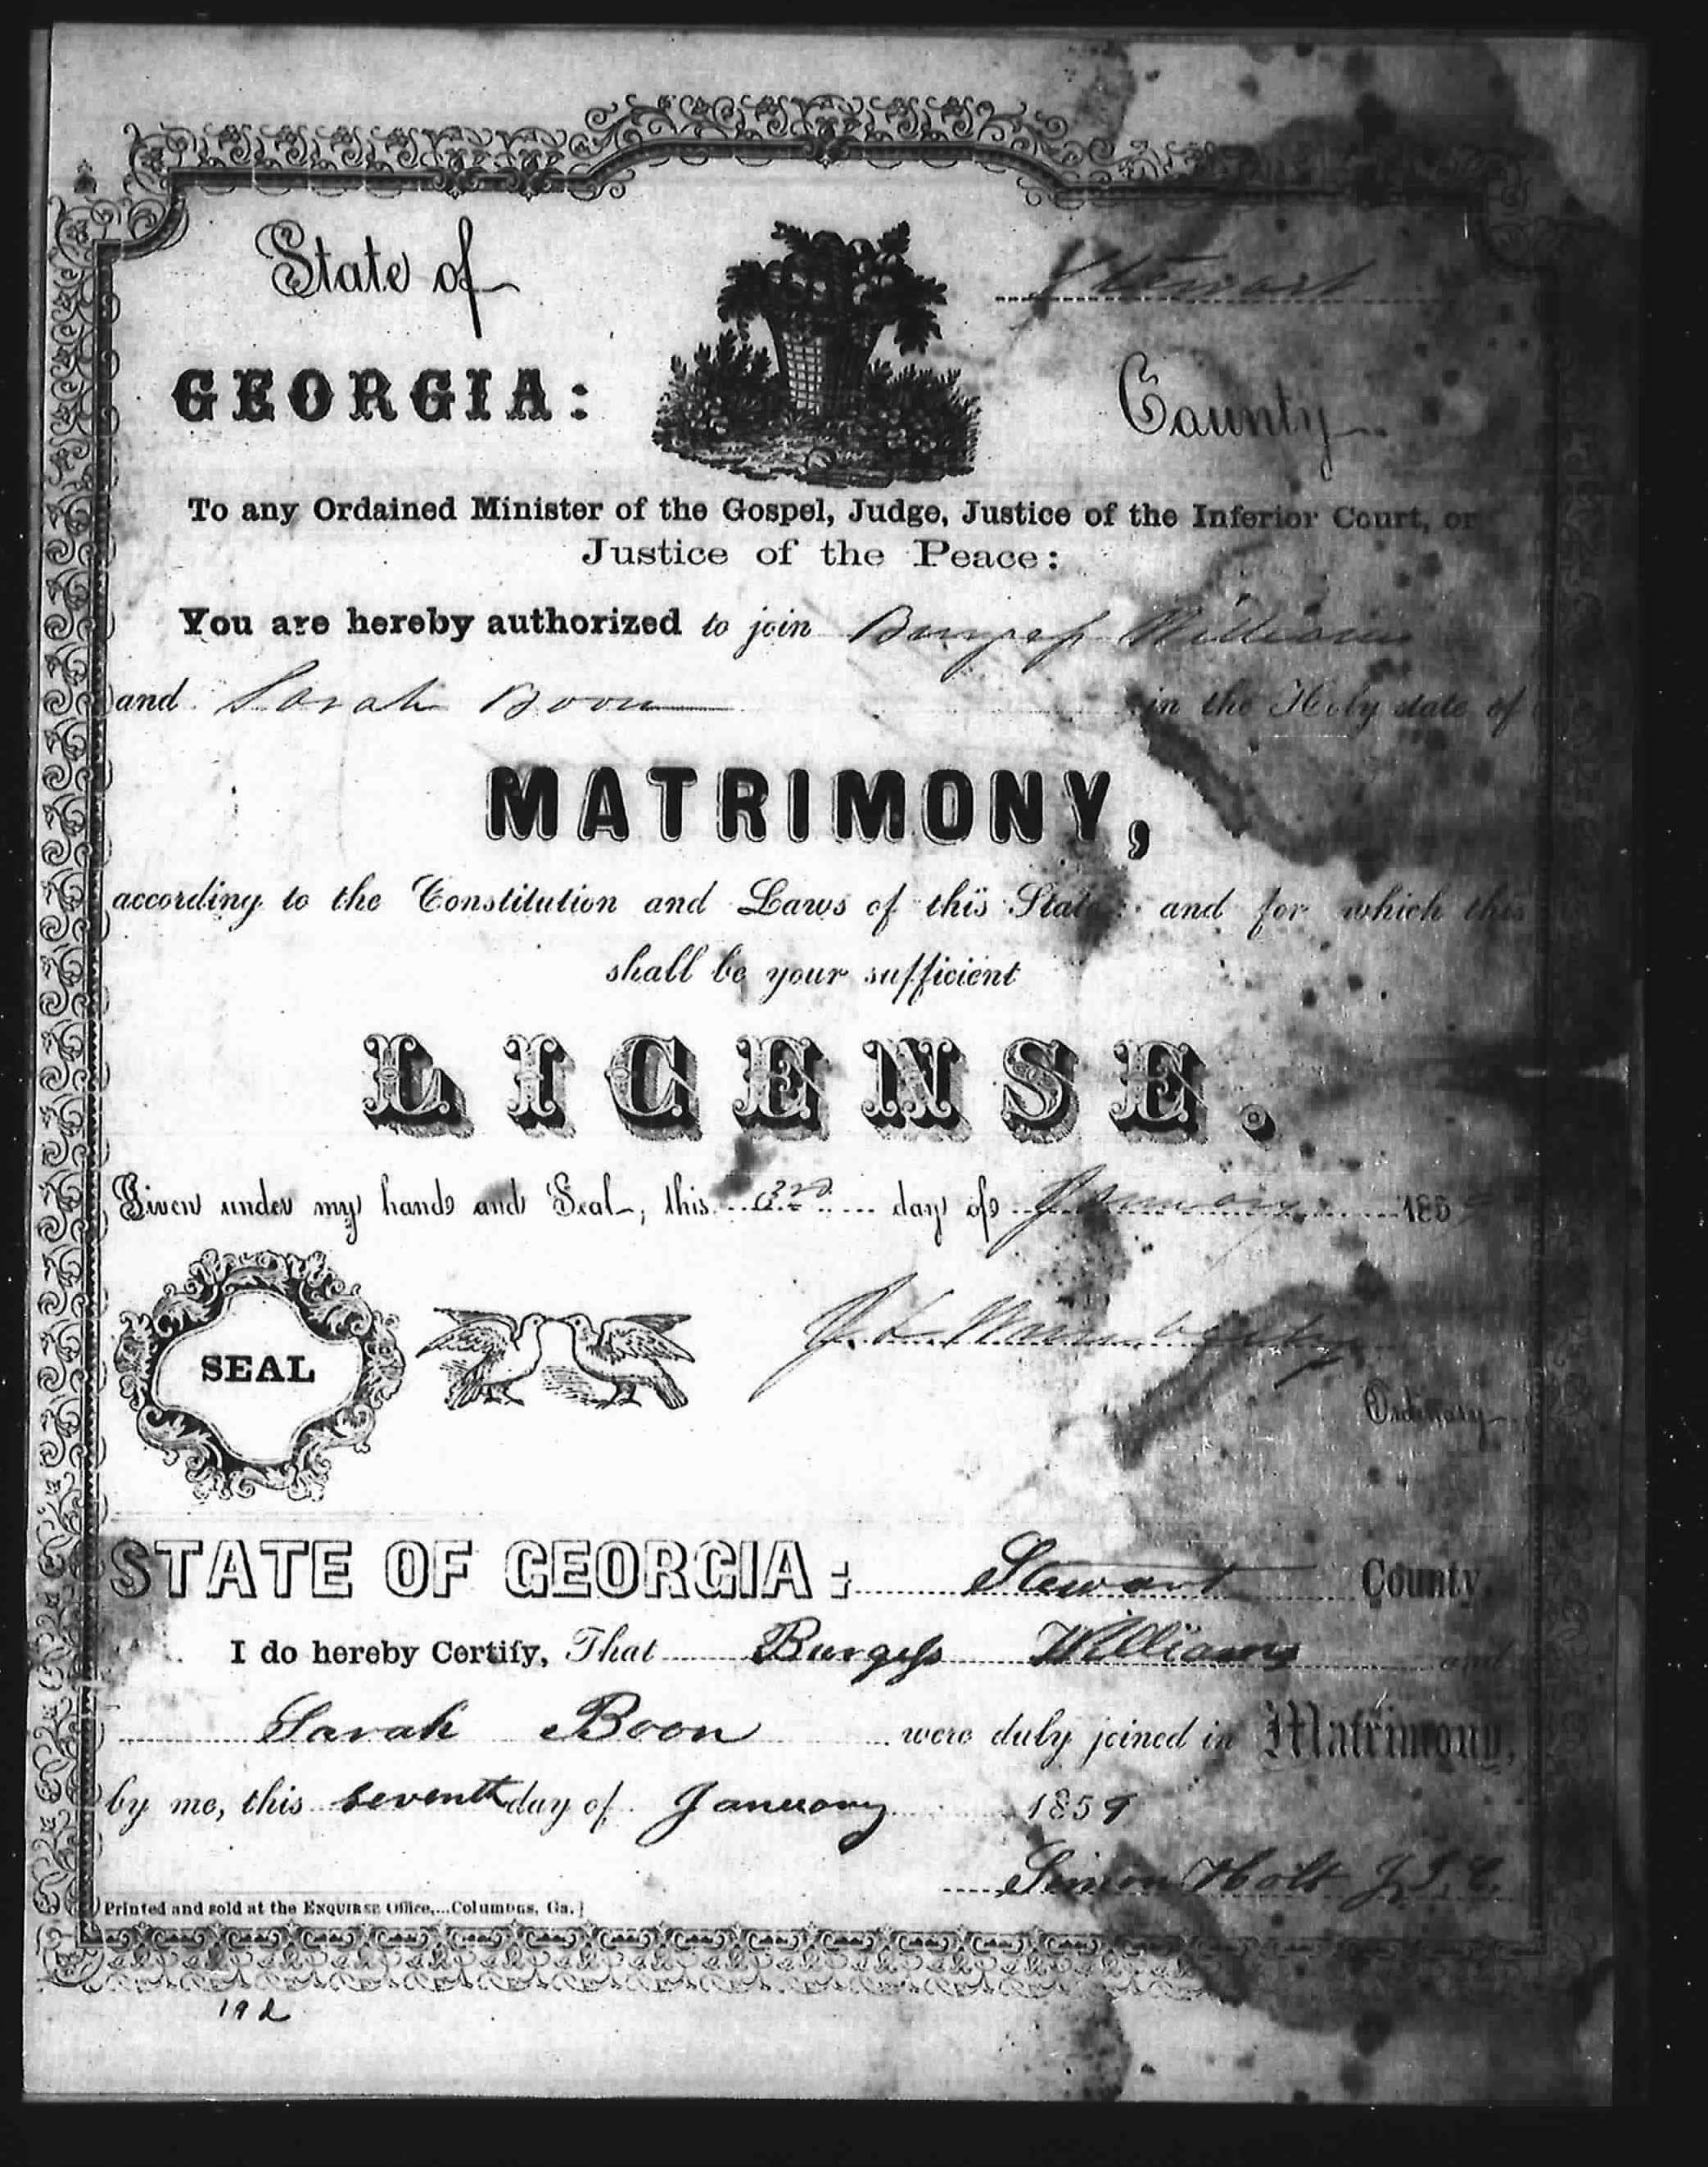 State of
Stewart
GEORGIA:
County
To any Ordained Minister of the Gospel, Judge, Justice of the Inferior Court, or
Justice of the Peace:
You are hereby authorized to join Burgess Williams
and Sarah Boon in the Holy state of
MATRIMONY,
according to the Constitution and Laws of this State: and for which this
shall be your sufficient
LICENSE.
Given under my hand and Seal, this 3rd day of January 185
SEAL
Ordinary
STATE OF GEORGIA: Stewart County
I do hereby Certify, That Burgess Williams and
Sarah Boon were duly joined in Matrimony,
by me, this seventh day of January 1859
Simon Holt J.I.C.
Printed and sold at the ENQUIRER Office,...Columbus, Ga.]
192